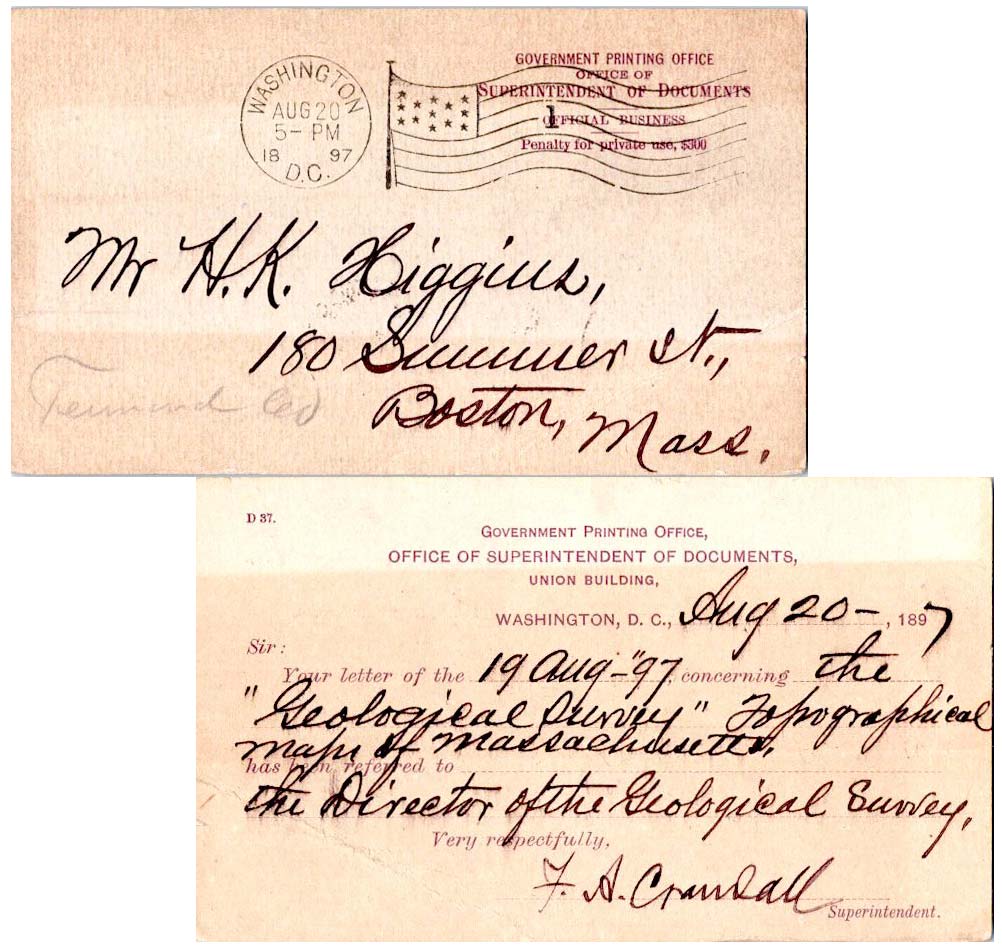 WASHINGTON
AUG 20
5 - PM
18 97
D.C.
GOVERNMENT PRINTING OFFICE
OFFICE OF
SUPERINTENDENT OF DOCUMENTS
1
OFFICIAL BUSINESS
Penalty for private use, $300
Mr H. K. Higgins,
180 Summer St.,
Boston, Mass.
D 37.
GOVERNMENT PRINTING OFFICE,
OFFICE OF SUPERINTENDENT OF DOCUMENTS,
UNION BUILDING,
WASHINGTON, D. C., Aug 20 - , 1897
Sir:
Your letter of the 19 Aug - "97, concerning the
"Geological Survey" Topographical
maps of Massachusetts,
has been referred to
the Director of the Geological Survey,
Very respectfully,
F. A. Crandall
Superintendent.